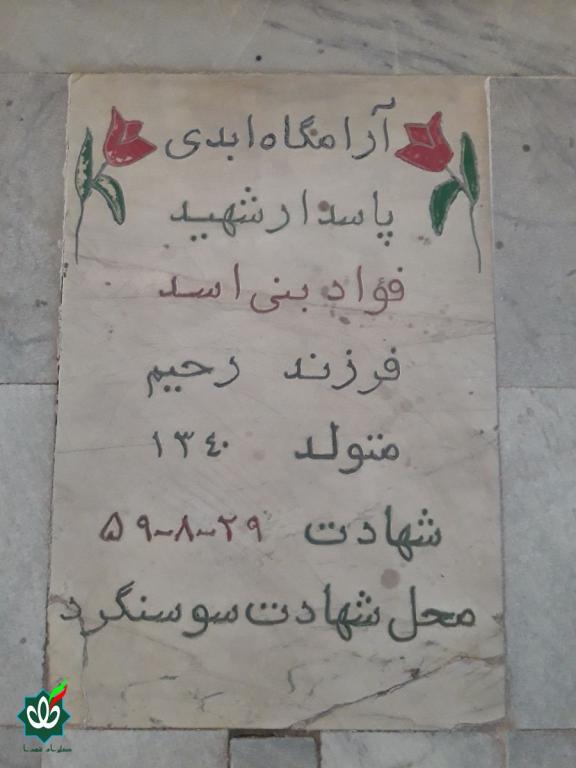 آرامگاه ابدی
پاسدار شهید
فؤاد بنی اسد
فرزند رحیم
متولد ۱۳۴۰
شهادت ۲۹-۸-۵۹
محل شهادت سوسنگرد